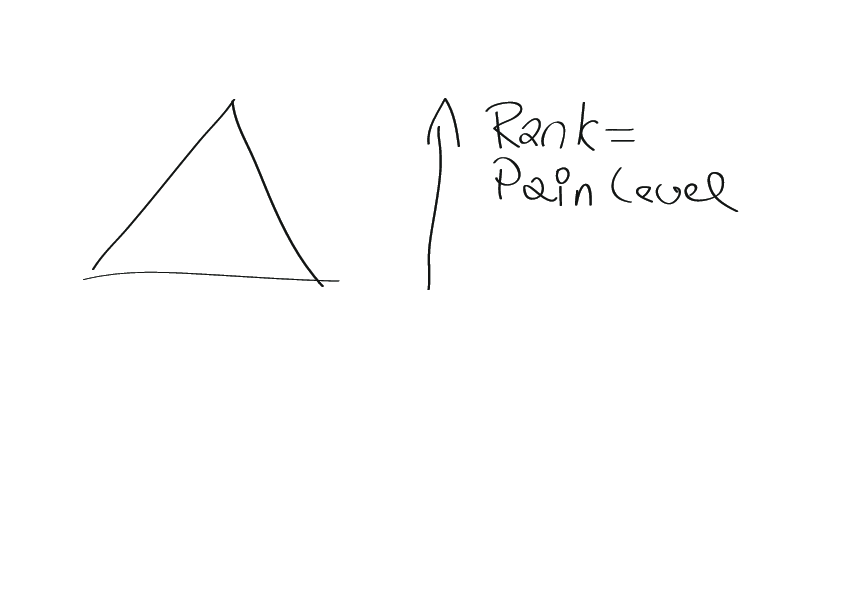 Rank=
Pain Level